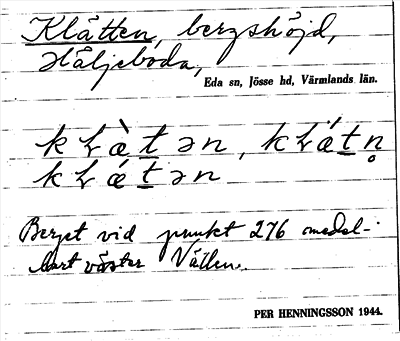 Klätten, bergshöjd,
Häljeboda,
Eda sn, Jösse hd, Värmlands län.
kḷà̱tən, kḷá̱tn̥
kḷǽ̱tən
Berget vid punkt 276 medel-
bart väster Vällen.
PER HENNINGSSON 1944.